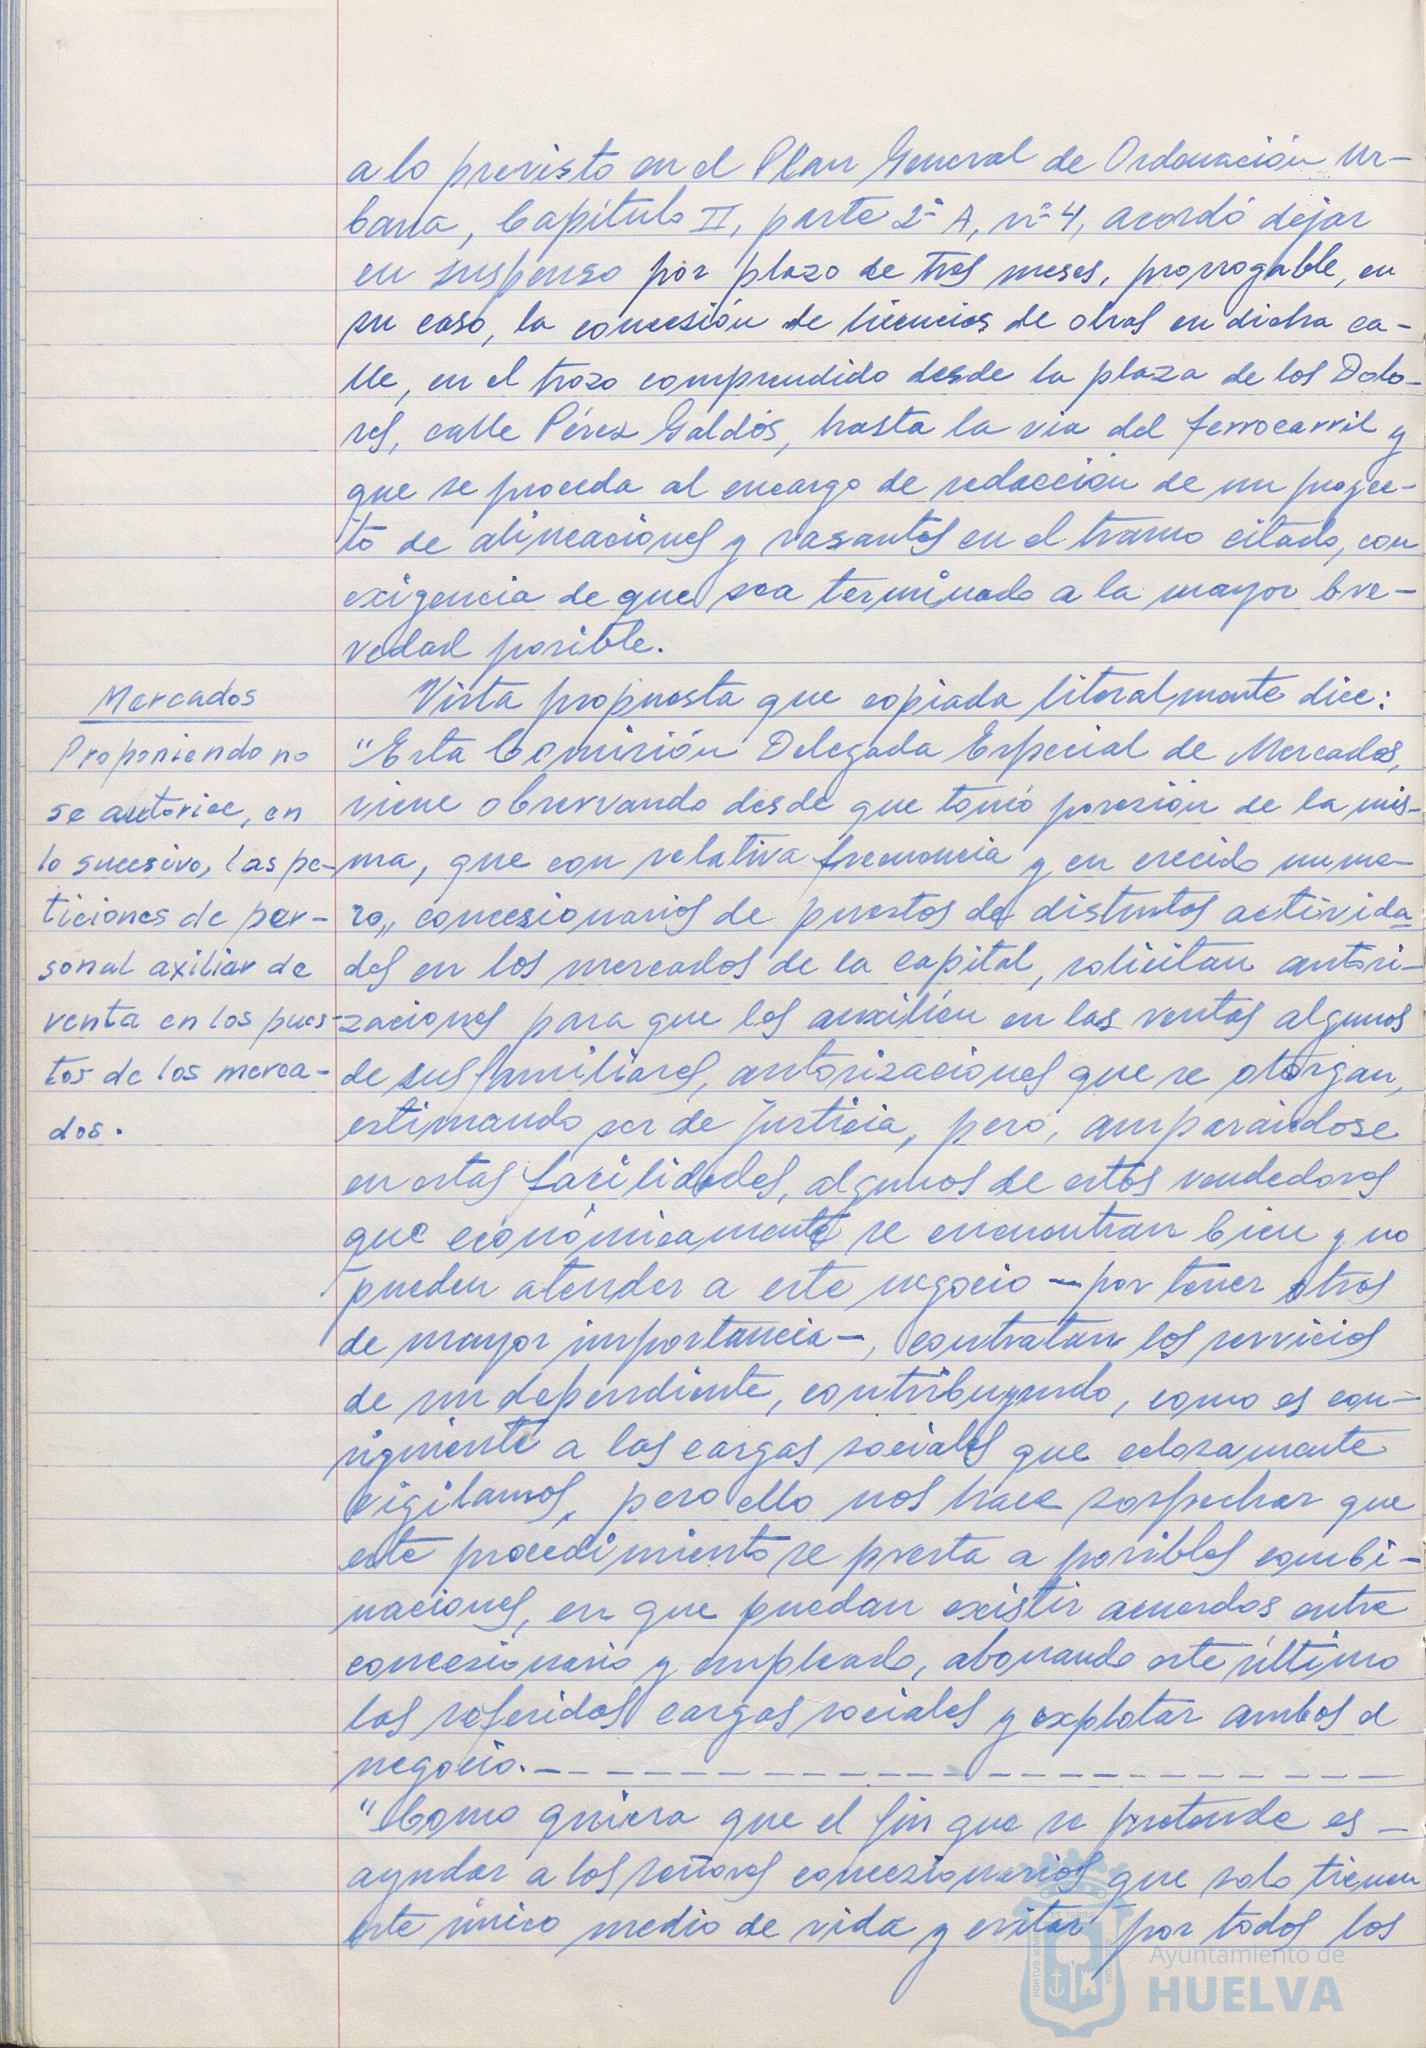 a lo previsto en el Plan General de Ordenación Ur-
bana, Capítulo II, parte 2ª A, nº 4, acordó dejar
en suspenso por plazo de tres meses, prorrogable, en
su caso, la concesión de licencias de obras en dicha ca-
lle, en el trozo comprendido desde la plaza de los Dolo-
res, calle Pérez Galdós, hasta la via del ferrocarril y
que se proceda al encargo de redacción de un proyec-
to de alineaciones y rasantes en el tramo citado, con
exigencia de que sea terminado a la mayor bre-
vedad posible.
Mercados
Proponiendo no
se autorice, en
lo sucesivo, las pe-
ticiones de per-
sonal axiliar de
venta en los pues-
tos de los merca-
dos.
Vista propuesta que copiada literalmente dice:
"Esta Comisión Delegada Especial de Mercados,
viene observando desde que tomó posesión de la mis-
ma, que con relativa frecuencia y en crecido nume-
ro,, concesionarios de puestos de distintas activida-
des en los mercados de la capital, solicitan autori-
zaciones para que les auxilien en las ventas algunos
de sus familiares, autorizaciones que se otorgan,
estimando ser de justicia, pero, amparándose
en estas facilidades, algunos de estos vendedores
que económicamente se encuentran bien y no
pueden atender a este negocio — por tener otros
de mayor importancia —, contratan los servicios
de un dependiente, contribuyendo, como es con-
siguiente a las cargas sociales que celosamente
vigilamos, pero ello nos hace sospechar que
este procedimiento se presta a posibles combi-
naciones, en que puedan existir acuerdos entre
concesionario y empleado, abonando este último
las referidas cargas sociales y explotar ambos el
negocio. — — — — — — — — — — — — — — —
"Como quiera que el fin que se pretende es —
ayudar a los señores concesionarios que solo tienen
este único medio de vida y evitar por todos los
Ayuntamiento de
HUELVA